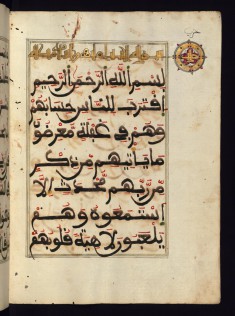 بسم الله الرحمن الرحيم
اقترب للناس حسابهم
وهم في غفلة معرضو
ما ياتيهم من ذكر
من ربهم محدث الا
استمعوه وهم
يلعبون لاهية قلوبهم